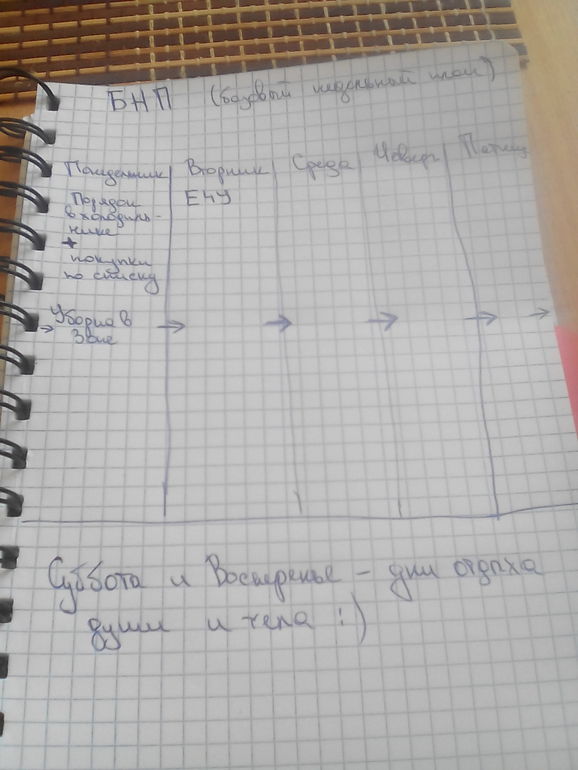 БНП (базовый недельный план)
Понедельник Вторник Среда Четверг Пятница
Порядок
в холодиль-
нике
+
покупки
по списку
ЕЧУ
→ Уборка в
Зоне → → → → →
Суббота и Воскресенье - дни отдыха
души и тела :)